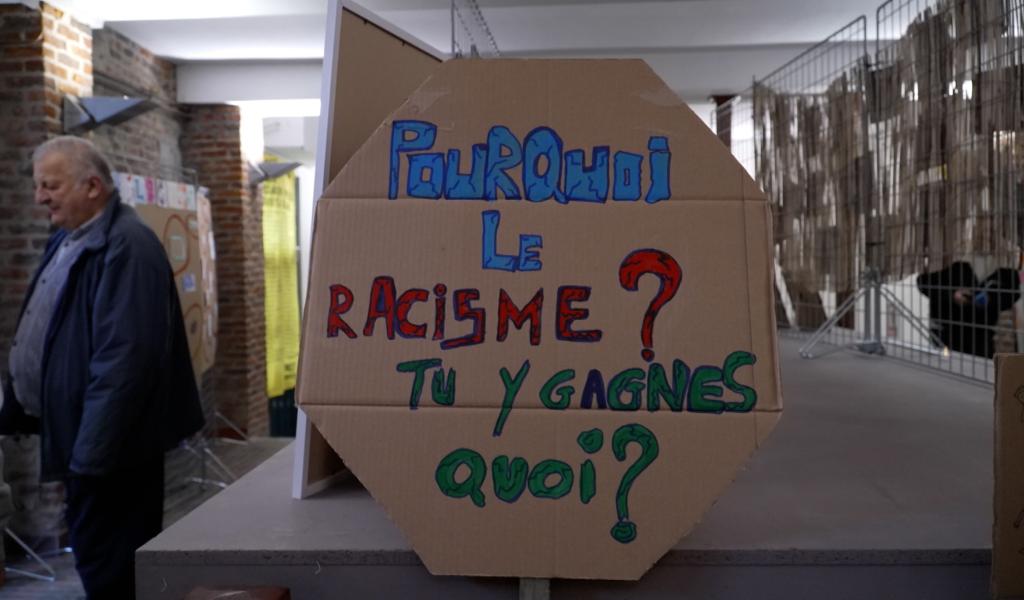 POURQUOI
LE
RACISME ?
TU Y GAGNES
QUOi ?